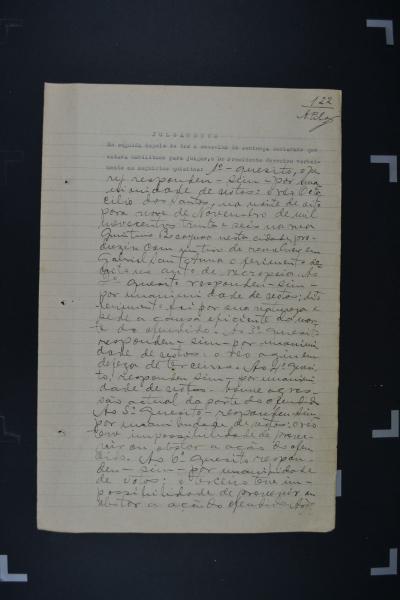 122
JULGAMENTO
Em seguida depois de
que
estava habilitado para julgar, o Presidente
os seguintes quesitos: 1º - quesito, o ju-
ry respondeu - sim - por una-
nimidade de votos: o réo
cilio dos Santos, na noite de oito
para nove de Novembro de mil
novecentos trinta e seis na rua
nesta cidade, pro-
duziu com um tiro de revolver em
Gabriel Sant'Anna o ferimento des-
cripto no auto de necropsia. Ao
2º quesito respondeu - sim -
por unanimidade de votos; dito
ferimento foi por sua natureza e
séde a causa efficiente da mor-
te do offendido. Ao 3º quesito
respondeu - sim - por unanimi-
dade de votos: o réo agiu em
defeza de terceiro. Ao 4º quesi-
to, respondeu sim - por unanimi-
dade de votos - houve agres-
são actual da parte do offendido.
Ao 5º quesito - respondeu sim
por unanimidade de votos: o réo
teve impossibilidade de preve-
nir ou obstar a acção do offen-
dido. Ao 6º quesito respon-
deu - sim - por unanimidade
de votos: o terceiro teve im-
possibilidade de prevenir ou
obstar a acção do offendido. Ao